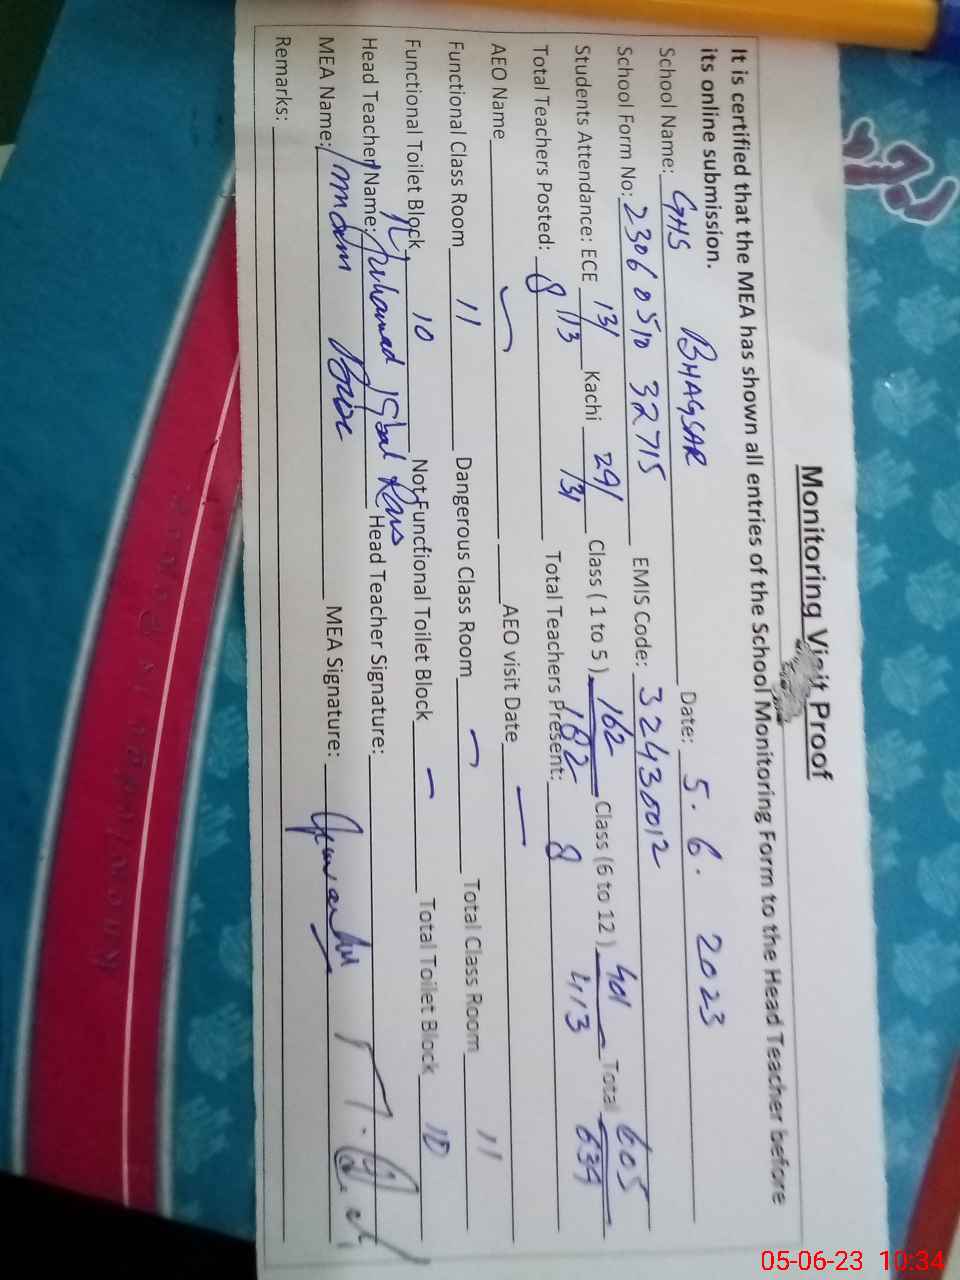 Monitoring Visit Proof
It is certified that the MEA has shown all entries of the School Monitoring Form to the Head Teacher before
its online submission.
School Name: GHS BHAGSAR Date: 5. 6. 2023
School Form No: 2306 0510 32715 EMIS Code: 32430012
Students Attendance: ECE 13/ Kachi 29/ Class ( 1 to 5 ) 162 Class (6 to 12 ) 401 Total 605
113 131 182 413 639
Total Teachers Posted: 8 Total Teachers Present: 8
AEO Name AEO visit Date —
Functional Class Room 11 Dangerous Class Room — Total Class Room 11
Functional Toilet Block 10 Not Functional Toilet Block — Total Toilet Block 10
Head Teacher Name: Iqbal Head Teacher Signature:
MEA Name: Imdam MEA Signature:
Remarks:
05-06-23 10:34